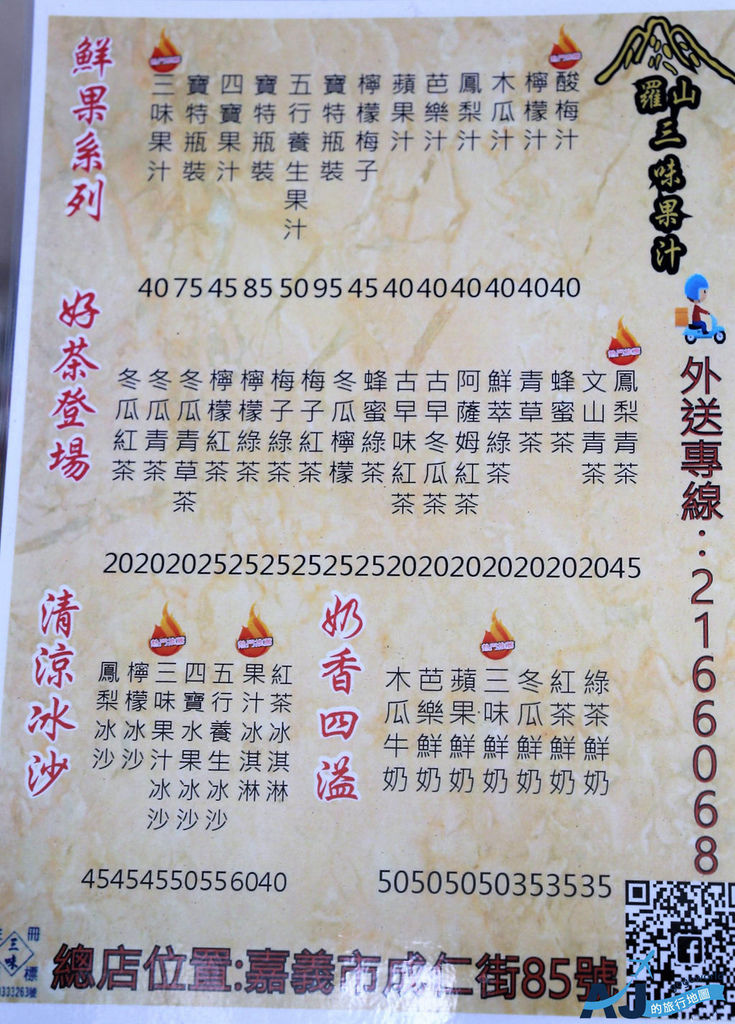 羅山
三味果汁
外送專線：2166068
鮮果系列
三味果汁
寶特瓶裝
四寶果汁
寶特瓶裝
五行養生果汁
寶特瓶裝
檸檬梅子
蘋果汁
芭樂汁
鳳梨汁
木瓜汁
檸檬汁
酸梅汁
40 75 45 85 50 95 45 40 40 40 40 40 40
好茶登場
冬瓜紅茶
冬瓜青茶
冬瓜青草茶
檸檬紅茶
檸檬綠茶
梅子綠茶
梅子紅茶
冬瓜檸檬
蜂蜜綠茶
古早味紅茶
古早冬瓜茶
阿薩姆紅茶
鮮萃綠茶
青草茶
蜂蜜茶
文山青茶
鳳梨青茶
20 20 20 25 25 25 25 25 25 20 20 20 20 20 20 20 45
清涼冰沙
鳳梨冰沙
檸檬冰沙
三味果汁冰沙
四寶水果冰沙
五行養生冰沙
果汁冰淇淋
紅茶冰淇淋
45 45 45 50 55 60 40
奶香四溢
木瓜牛奶
芭樂鮮奶
蘋果鮮奶
三味鮮奶
冬瓜鮮奶
紅茶鮮奶
綠茶鮮奶
50 50 50 50 35 35 35
冊
三味
標
總店位置:嘉義市成仁街85號
AJ的旅行地圖